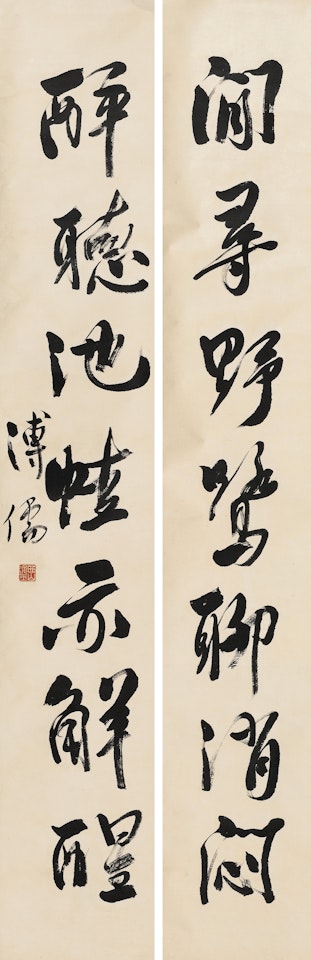 閒尋野鷺聊消悶
醉聽池蛙亦解醒
溥儒